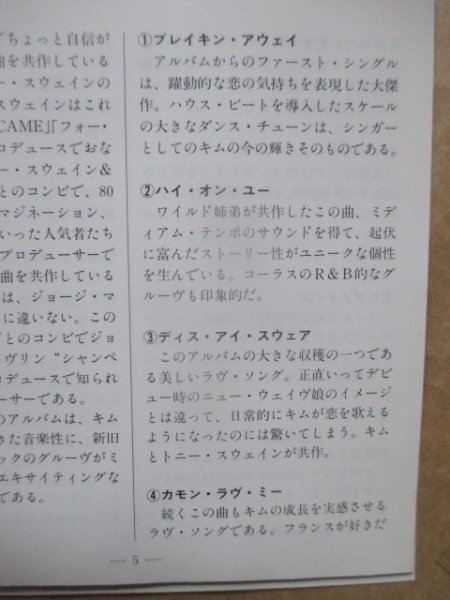 でちょっと自信が
曲を共作している
ー・スウェインの
スウェインはこれ
CAME」「フォー・
ロデュースでおな
ー・スウェイン&
とのコンビで、80
マジネーション、
いった人気者たち
プロデューサーで
曲を共作している
は、ジョージ・マ
に違いない。この
とのコンビでジョ
ヴリン“シャンペ
ロデュースで知られ
ーサーである。
のアルバムは、キム
きた音楽性に、新旧
ックのグルーヴがミ
エキサイティングな
である。
①ブレイキン・アウェイ
アルバムからのファースト・シングル
は、躍動的な恋の気持ちを表現した大傑
作。ハウス・ビートを導入したスケール
の大きなダンス・チューンは、シンガー
としてのキムの今の輝きそのものである。
②ハイ・オン・ユー
ワイルド姉弟が共作したこの曲、ミデ
ィアム・テンポのサウンドを得て、起伏
に富んだストーリー性がユニークな個性
を生んでいる。コーラスのR&B的なグ
ルーヴも印象的だ。
③ディス・アイ・スウェア
このアルバムの大きな収穫の一つであ
る美しいラヴ・ソング。正直いってデビ
ュー時のニュー・ウェイヴ娘のイメージ
とは違って、日常的にキムが恋を歌える
ようになったのには驚いてしまう。キム
とトニー・スウェインが共作。
④カモン・ラヴ・ミー
続くこの曲もキムの成長を実感させる
ラヴ・ソングである。フランスが好きだ
— 5 —